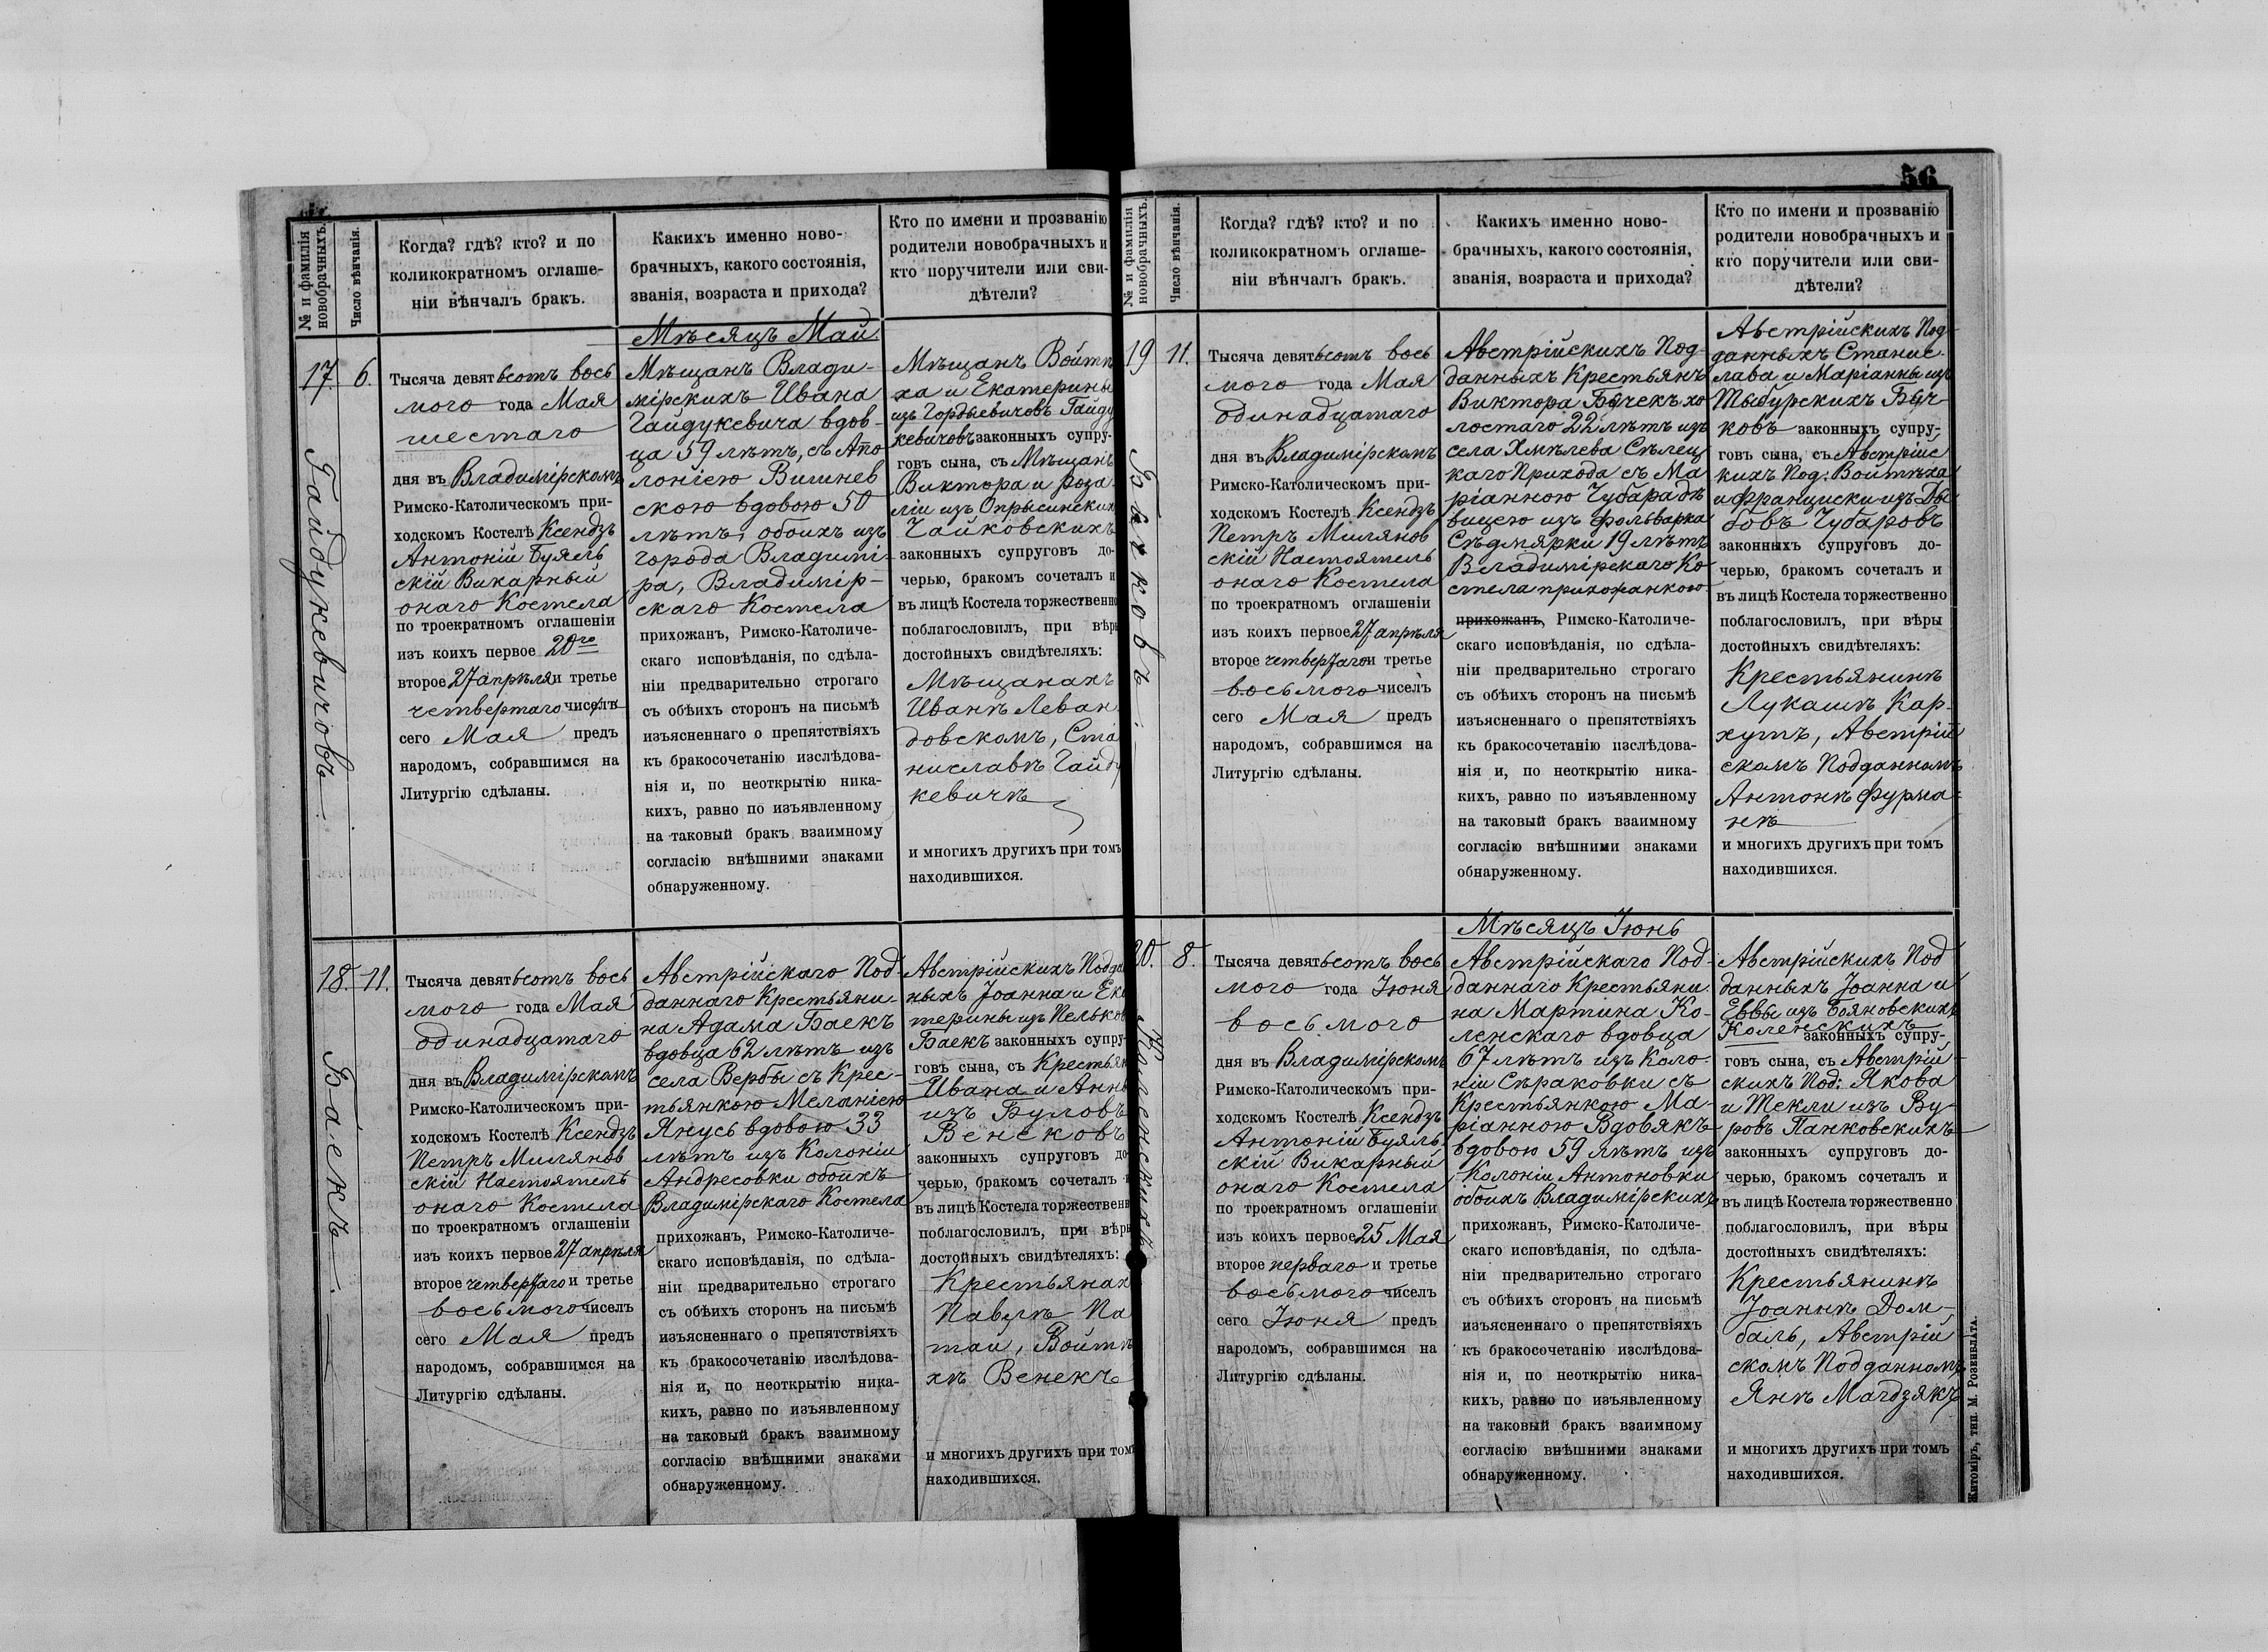 56
№ и фамилія новобрачныхъ.
Число вѣнчанія.
Когда? гдѣ? кто? и по
коликократномъ оглаше-
ніи вѣнчалъ бракъ.
Какихъ именно ново-
брачныхъ, какого состоянія,
званія, возраста и прихода?
Кто по имени и прозванію
родители новобрачныхъ и
кто поручители или сви-
дѣтели?
Мѣсяцъ Май.
17.
Гайдукевичовъ.
6.
Тысяча девятьсотъ вось
мого года Мая
шестаго
дня въ Владимірскомъ
Римско-Католическомъ при-
ходскомъ Костелѣ Ксендзъ
Антоній Буяль
скій Викарный
онаго Костела
по троекратномъ оглашеніи
изъ коихъ первое 20го
второе 27 апрѣля и третье
четвертаго чиселъ
сего Мая предъ
народомъ, собравшимся на
Литургію сдѣланы.
Мѣщанъ Влади-
мірскихъ Ивана
Гайдукевича вдов-
ца 59 лѣтъ, съ Апо
лоніею Вишнев
скою вдовою 50
лѣтъ, обоихъ изъ
города Владимі-
ра, Владимір-
скаго Костела
прихожанъ, Римско-Католиче-
скаго исповѣданія, по сдѣла-
ніи предварительно строгаго
съ обѣихъ сторонъ на письмѣ
изъясненнаго о препятствіяхъ
къ бракосочетанію изслѣдова-
нія и, по неоткрытію ника-
кихъ, равно по изъявленному
на таковый бракъ взаимному
согласію внѣшними знаками
обнаруженному.
Мѣщанъ Войтѣ
ха и Екатерины
изъ Гордыевичовъ Гайду
кевичовъ законныхъ супру-
говъ сына, съ Мѣщанъ
Виктора и Роза-
ліи изъ Опрысинскихъ
Чайковскихъ
законныхъ супруговъ до-
черью, бракомъ сочеталъ и
въ лицѣ Костела торжественно
поблагословилъ, при вѣры
достойныхъ свидѣтеляхъ:
Мѣщанахъ
Иванѣ Леван
довскомъ, Ста
ниславѣ Гайду
кевичѣ
и многихъ другихъ при томъ
находившихся.
18.
Баекъ.
11.
Тысяча девятьсотъ вось
мого года Мая
одинадцатаго
дня въ Владимірскомъ
Римско-Католическомъ при-
ходскомъ Костелѣ Ксендзъ
Петръ Милянов
скій Настоятель
онаго Костела
по троекратномъ оглашеніи
изъ коихъ первое 27 апрѣля
второе четвертаго и третье
восьмого чиселъ
сего Мая предъ
народомъ, собравшимся на
Литургію сдѣланы.
Австрійскаго Под-
даннаго Крестьяни-
на Адама Баекъ
вдовца 62 лѣтъ изъ
села Вербы съ Крес-
тьянкою Меланіею
Янусь вдовою 33
лѣтъ изъ Колоніи
Андресовки обоихъ
Владимірскаго Костела
прихожанъ, Римско-Католиче-
скаго исповѣданія, по сдѣла-
ніи предварительно строгаго
съ обѣихъ сторонъ на письмѣ
изъясненнаго о препятствіяхъ
къ бракосочетанію изслѣдова-
нія и, по неоткрытію ника-
кихъ, равно по изъявленному
на таковый бракъ взаимному
согласію внѣшними знаками
обнаруженному.
Австрійскихъ Подда
ныхъ Іоанна и Ека
терины изъ Пельков
Баекъ законныхъ супру-
говъ сына, съ Крестьян
Ивана и Анны
изъ Буловъ
Венековъ
законныхъ супруговъ до-
черью, бракомъ сочеталъ и
въ лицѣ Костела торжественн
поблагословилъ, при вѣры
достойныхъ свидѣтеляхъ:
Крестьянах
Павлѣ Па
таи, Войтѣ
хѣ Венекъ
и многихъ другихъ при томъ
находившихся.
№ и фамилія новобрачныхъ.
Число вѣнчанія.
Когда? гдѣ? кто? и по
коликократномъ оглаше-
ніи вѣнчалъ бракъ.
Какихъ именно ново-
брачныхъ, какого состоянія,
званія, возраста и прихода?
Кто по имени и прозванію
родители новобрачныхъ и
кто поручители или сви-
дѣтели?
19
Бычковъ.
11.
Тысяча девятьсотъ вось
мого года Мая
одинадцатаго
дня въ Владимірскомъ
Римско-Католическомъ при-
ходскомъ Костелѣ Ксендзъ
Петръ Милянов
скій Настоятель
онаго Костела
по троекратномъ оглашеніи
изъ коихъ первое 27 апрѣля
второе четвертаго и третье
восьмого чиселъ
сего Мая предъ
народомъ, собравшимся на
Литургію сдѣланы.
Австрійскихъ Под-
данныхъ Крестьянъ
Виктора Бычекъ хо
лостаго 22 лѣтъ изъ
села Хмѣлева Сѣлец
каго Прихода съ Ма
ріанною Чубара дѣ
вицею изъ фольварка
Сѣдмярки 19 лѣтъ
Владимірскаго Ко
стела прихожанкою
прихожанъ, Римско-Католиче-
скаго исповѣданія, по сдѣла-
ніи предварительно строгаго
съ обѣихъ сторонъ на письмѣ
изъясненнаго о препятствіяхъ
къ бракосочетанію изслѣдова-
нія и, по неоткрытію ника-
кихъ, равно по изъявленному
на таковый бракъ взаимному
согласію внѣшними знаками
обнаруженному.
Австрійскихъ Под-
данныхъ Станис-
лава и Маріанны изъ
Тыбурскихъ Быч-
ковъ законныхъ супру-
говъ сына, съ Австрійс
кихъ Под: Войтѣха
и Франциски изъ Ды
бовъ Чубаровъ
законныхъ супруговъ до-
черью, бракомъ сочеталъ и
въ лицѣ Костела торжественно
поблагословилъ, при вѣры
достойныхъ свидѣтеляхъ:
Крестьянинѣ
Лукашѣ Кар-
хутъ, Австрій
скомъ Подданномъ
Антонѣ Фурма-
нѣ
и многихъ другихъ при томъ
находившихся.
Мѣсяцъ Іюнь
20.
Коленскихъ
8.
Тысяча девятьсотъ вось
мого года Іюня
восьмого
дня въ Владимірскомъ
Римско-Католическомъ при-
ходскомъ Костелѣ Ксендзъ
Антоній Буяль
скій Викарный
онаго Костела
по троекратномъ оглашеніи
изъ коихъ первое 25 Мая
второе перваго и третье
восьмого чиселъ
сего Іюня предъ
народомъ, собравшимся на
Литургію сдѣланы.
Австрійскаго Под-
даннаго Крестьяни
на Мартина Ко-
ленскаго вдовца
67 лѣтъ изъ Коло-
ніи Сѣраковки съ
Крестьянкою Ма-
ріанною Вдовякъ
вдовою 59 лѣтъ изъ
Колоніи Антоновки
обоихъ Владимірскихъ
прихожанъ, Римско-Католиче-
скаго исповѣданія, по сдѣла-
ніи предварительно строгаго
съ обѣихъ сторонъ на письмѣ
изъясненнаго о препятствіяхъ
къ бракосочетанію изслѣдова-
нія и, по неоткрытію ника-
кихъ, равно по изъявленному
на таковый бракъ взаимному
согласію внѣшними знаками
обнаруженному.
Австрійскихъ Под
данныхъ Іоанна и
Еввы изъ Бояновскихъ
Коленскихъ
законныхъ супру-
говъ сына, съ Австрій
скихъ Под: Якова
и Текли изъ Ву-
ровъ Панковскихъ
законныхъ супруговъ до-
черью, бракомъ сочеталъ и
въ лицѣ Костела торжественно
поблагословилъ, при вѣры
достойныхъ свидѣтеляхъ:
Крестьянинѣ
Іоаннѣ Дом-
баль, Австрій
скомъ Подданномъ
Янѣ Магдзякъ
и многихъ другихъ при томъ
находившихся.
Житоміръ, тип. М. Розенблата.